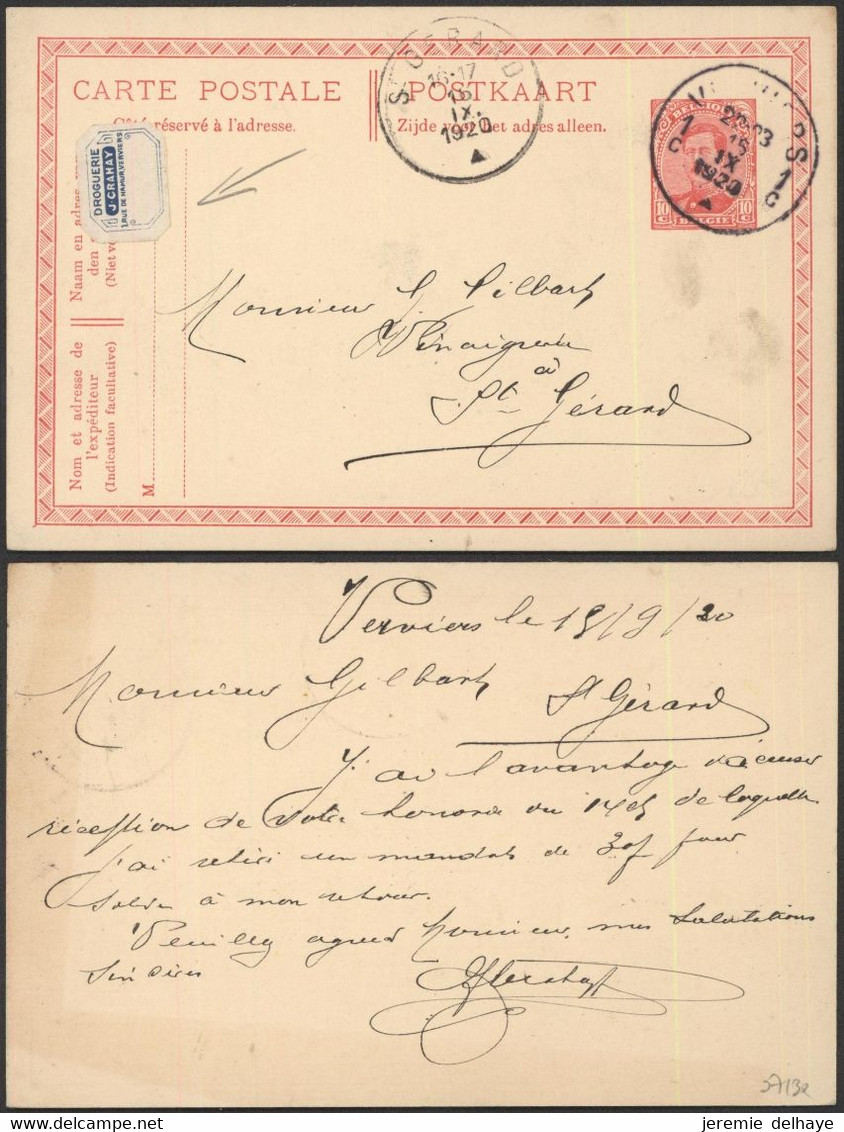 CARTE POSTALE
POSTKAART
Côté réservé à l'adresse.
Zijde voor het adres alleen.
ST GERARD
16-17
15
IX.
1920
VERVIERS
1C 1C
22-23
15
IX
1920
BELGIQUE
10 C
10 C
BELGIË
DROGUERIE
J. CRAHAY
1, RUE DE NAMUR, VERVIERS
Naam en adres
den
(Niet ve
Nom et adresse de
l'expéditeur
(Indication facultative)
M
Monsieur J. Gilbart
Vinaigrerie
à
St Gérard
Verviers le 15/9/20
Monsieur Gilbart
St Gérard
J'ai l'avantage d'accuser
réception de votre honorée du 14ct de laquelle
j'ai retiré un mandat de 30f pour
solde à mon retour.
Veuillez agréer Monsieur, mes salutations
sincères
jeremie delhaye